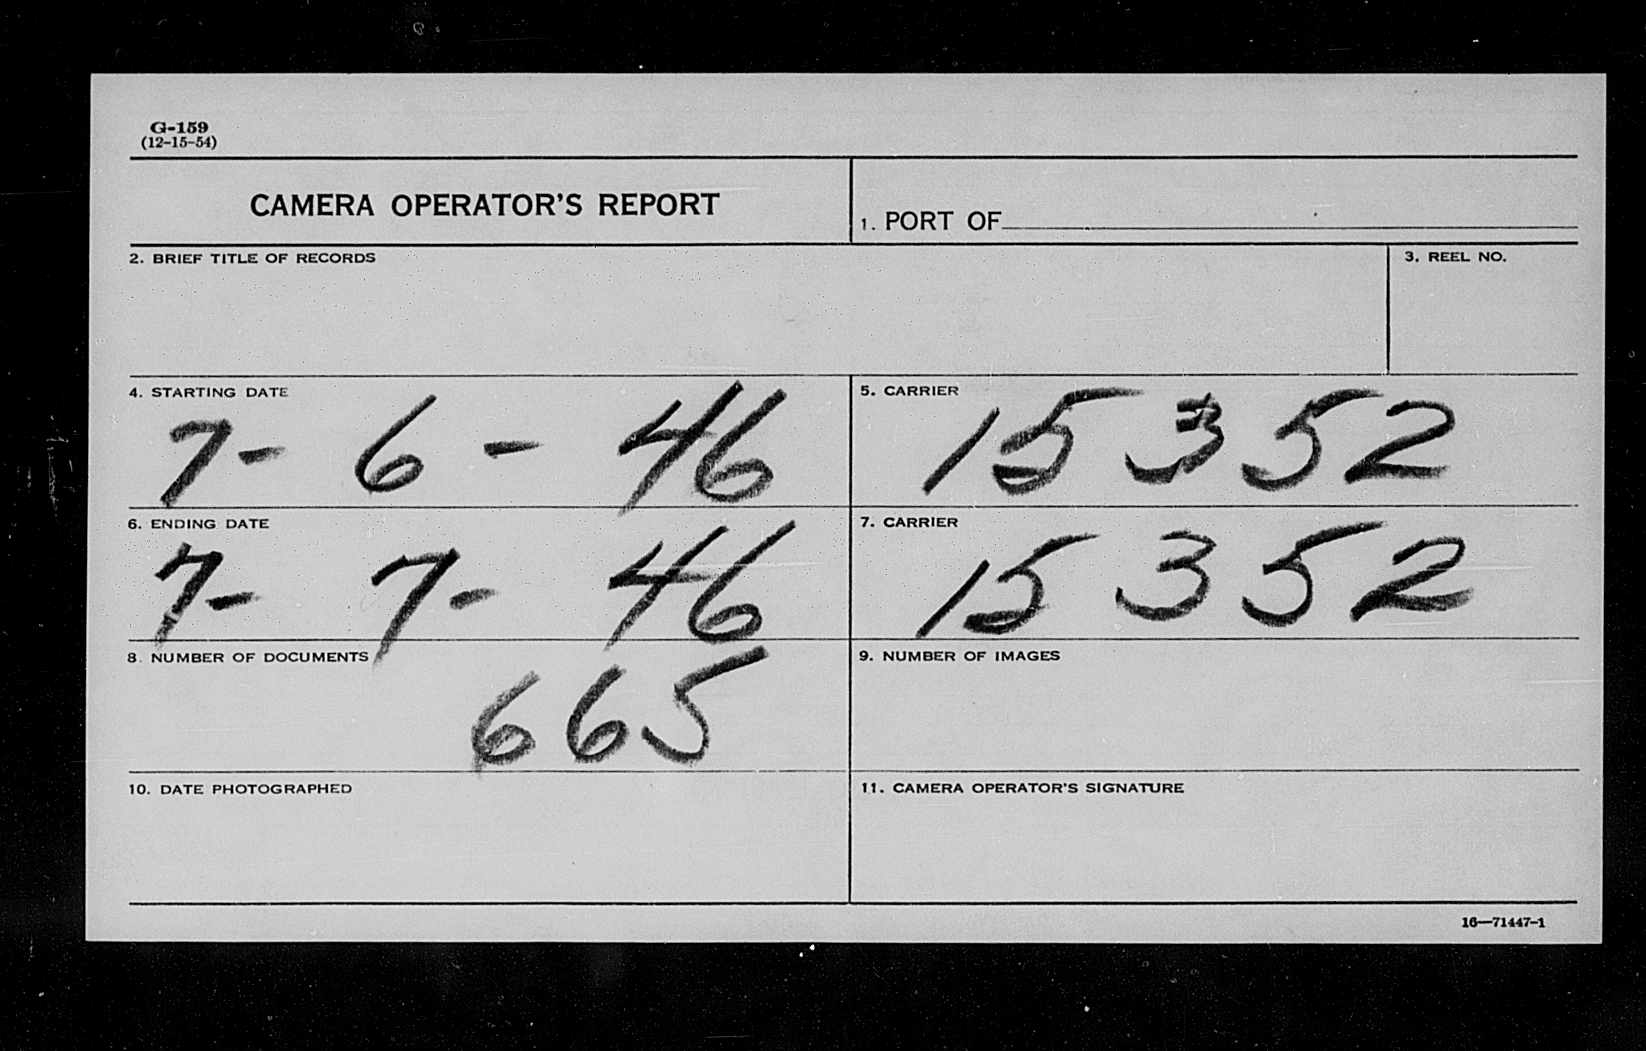 G-159
(12-15-54)
CAMERA OPERATOR'S REPORT
1. PORT OF
2. BRIEF TITLE OF RECORDS
3. REEL NO.
4. STARTING DATE
7- 6 - 46
5. CARRIER
15352
6. ENDING DATE
7- 7- 46
7. CARRIER
15352
8. NUMBER OF DOCUMENTS
665
9. NUMBER OF IMAGES
10. DATE PHOTOGRAPHED
11. CAMERA OPERATOR'S SIGNATURE
16—71447-1